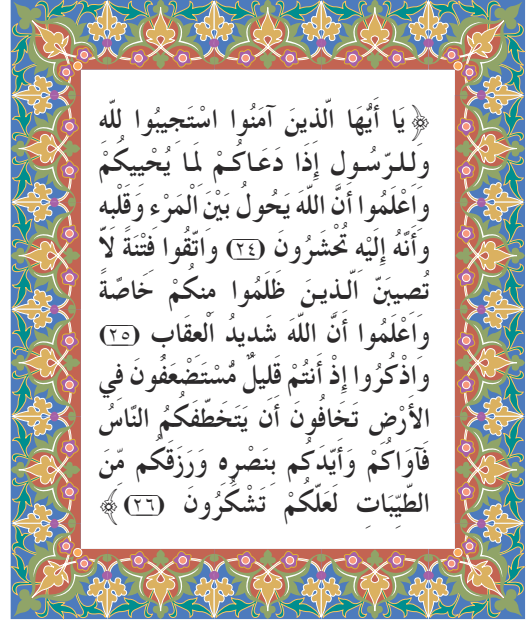 ﴿يَا أَيُّهَا الَّذِينَ آمَنُوا اسْتَجِيبُوا لِلَّهِ
وَلِلرَّسُولِ إِذَا دَعَاكُمْ لِمَا يُحْيِيكُمْ
وَاعْلَمُوا أَنَّ اللَّهَ يَحُولُ بَيْنَ الْمَرْءِ وَقَلْبِهِ
وَأَنَّهُ إِلَيْهِ تُحْشَرُونَ (٢٤) وَاتَّقُوا فِتْنَةً لَّا
تُصِيبَنَّ الَّذِينَ ظَلَمُوا مِنكُمْ خَاصَّةً
وَاعْلَمُوا أَنَّ اللَّهَ شَدِيدُ الْعِقَابِ (٢٥)
وَاذْكُرُوا إِذْ أَنتُمْ قَلِيلٌ مُّسْتَضْعَفُونَ فِي
الأَرْضِ تَخَافُونَ أَن يَتَخَطَّفَكُمُ النَّاسُ
فَآوَاكُمْ وَأَيَّدَكُم بِنَصْرِهِ وَرَزَقَكُم مِّنَ
الطَّيِّبَاتِ لَعَلَّكُمْ تَشْكُرُونَ (٢٦)﴾